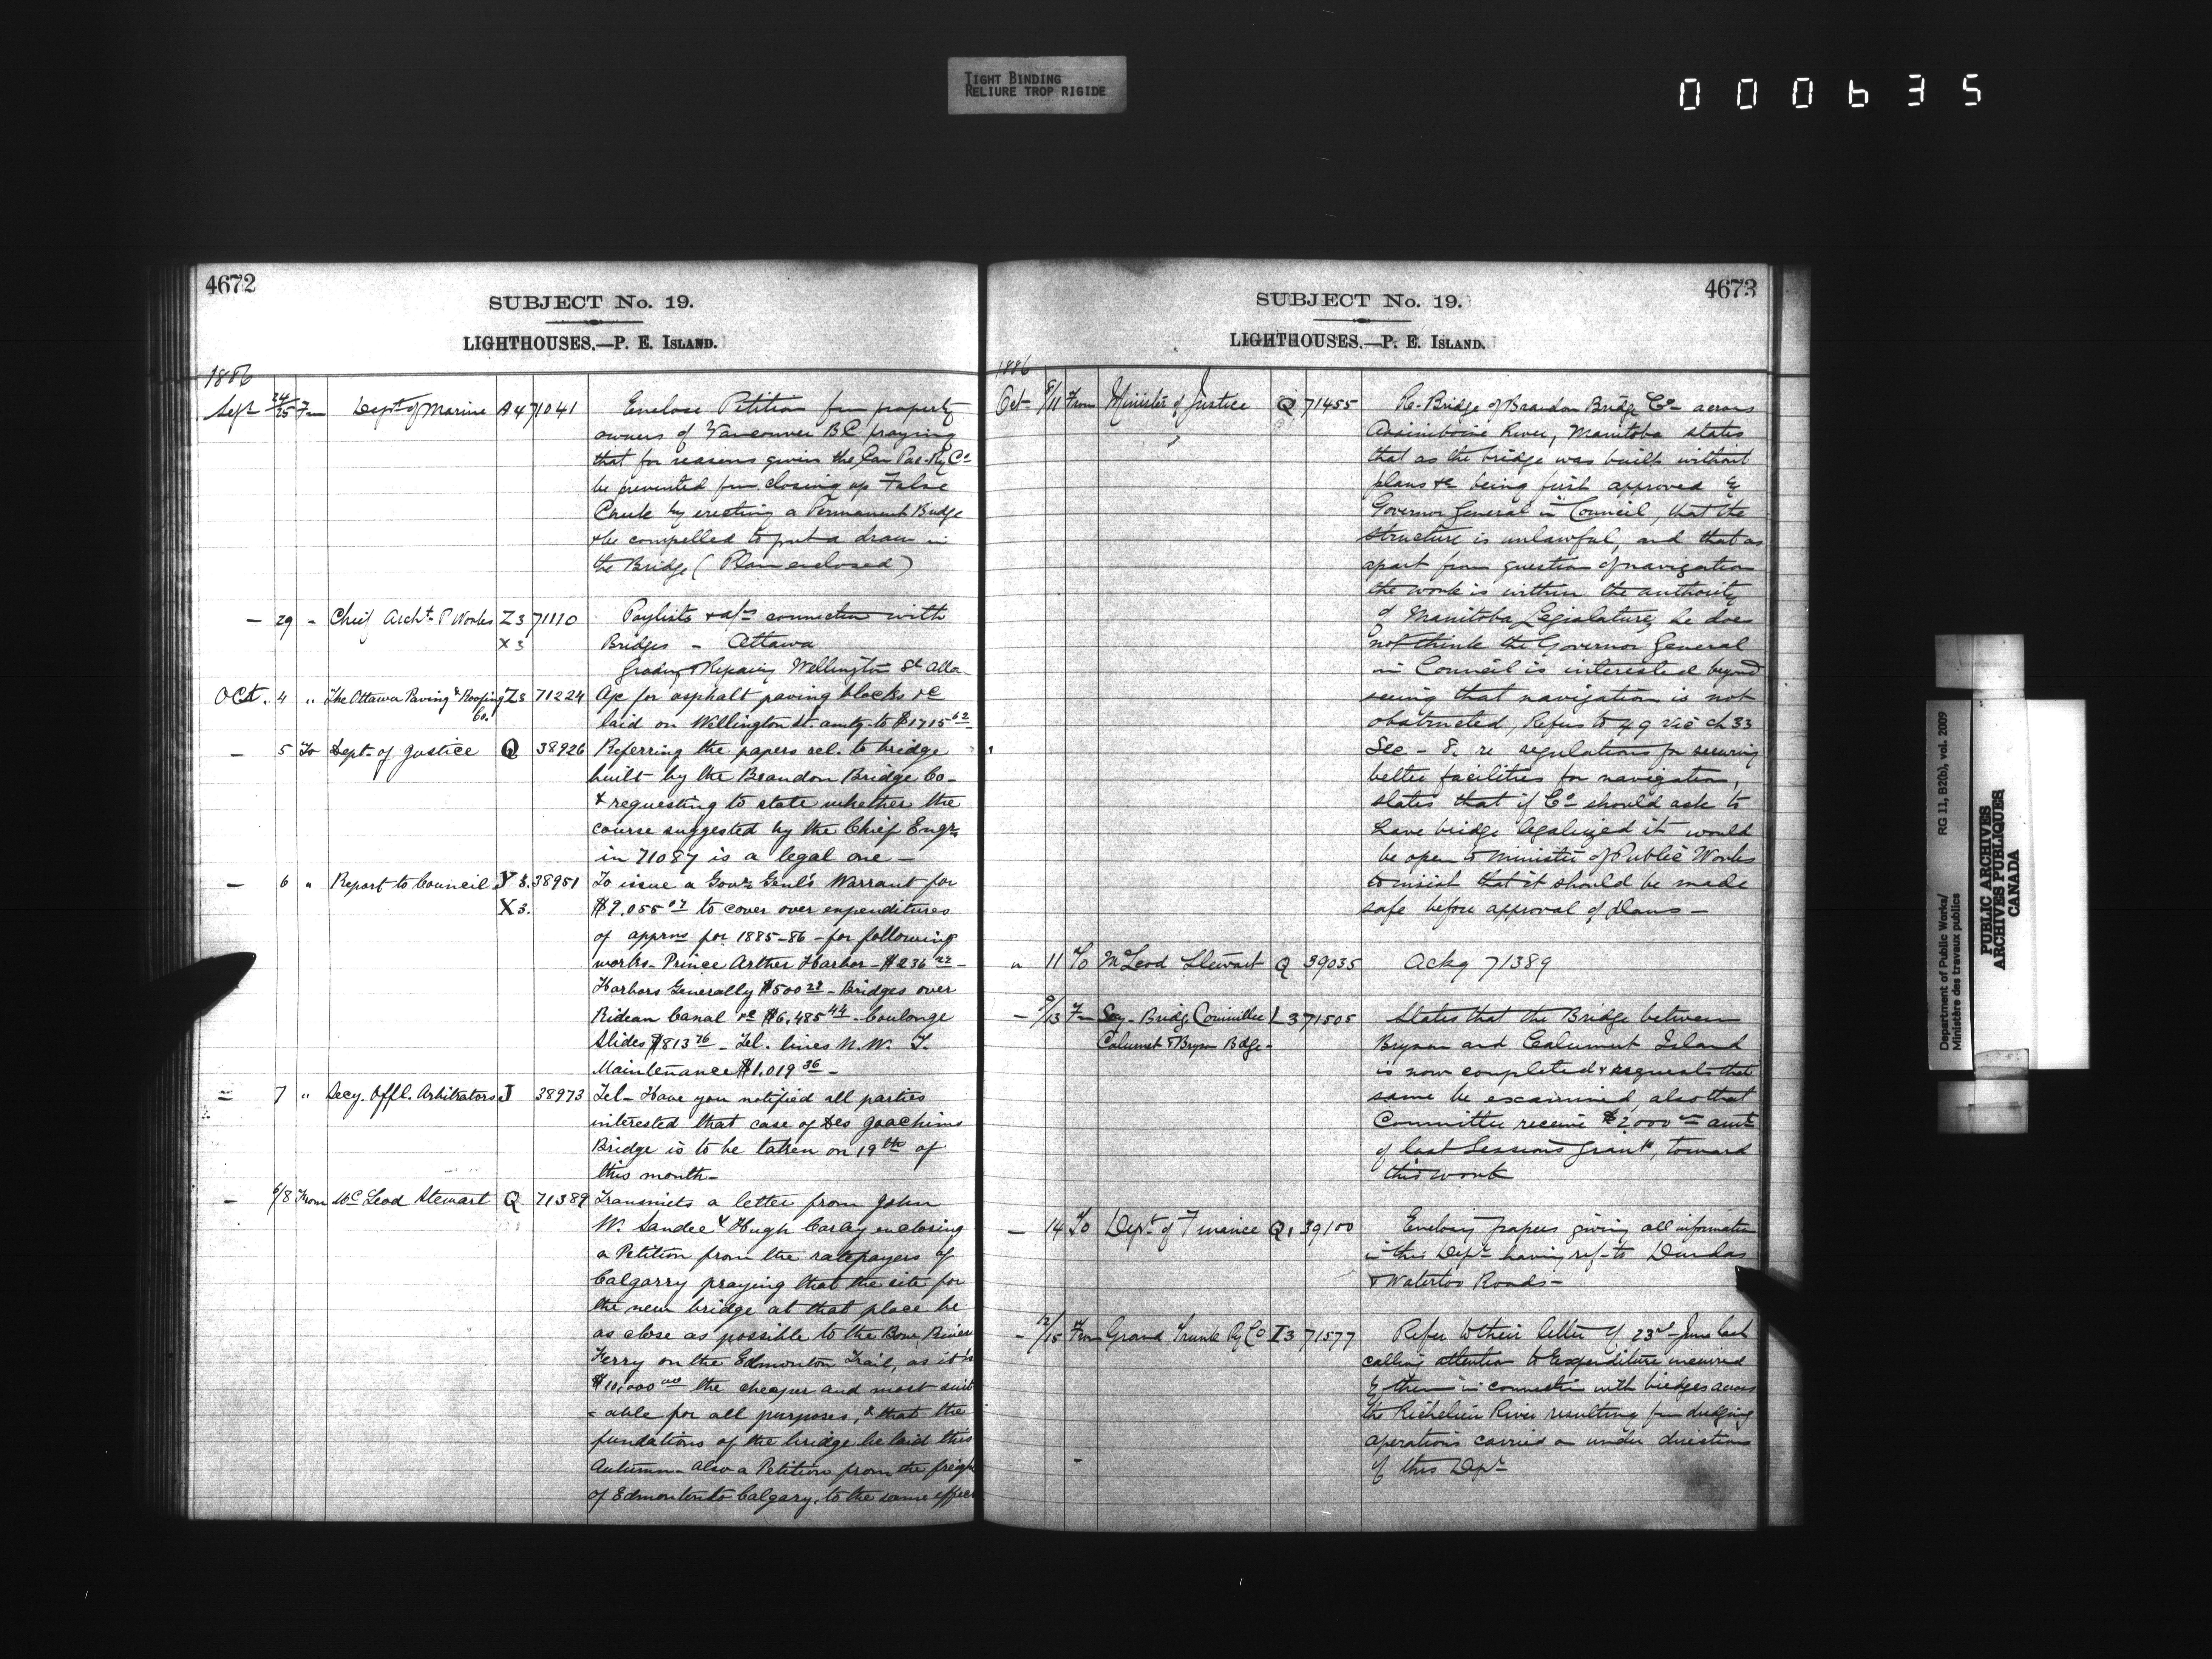 TIGHT BINDING
RELIURE TROP RIGIDE
000635
4672
SUBJECT No. 19.
LIGHTHOUSES.—P. E. ISLAND.
1886
Sept 24/25 Fm Dept of Marine A4 71041 Enclose Petition from property
owners of Vancouver BC praying
that for reasons given the Can Pac Ry Co
be prevented from closing up False
Creek by erecting a Permanent Bridge
& be compelled to put a draw in
the Bridge (Plan enclosed)
— 29 " Chief Archt P Works Z3 71110 Paylists & a/cs connection with
X3 Bridges - Ottawa
Grading & Repairing Wellington St Otta
Oct. 4 " The Ottawa Paving & Roofing Z3 71224 A/c for asphalt paving blocks &c
Co. laid on Wellington St. amtg. to $1715 62
— 5 To Dept. of Justice Q 38926 Referring the papers rel. to bridge
built by the Brandon Bridge Co-
& requesting to state whether the
course suggested by the Chief Engr.
in 71087 is a legal one —
— 6 " Report to Council Y3. 38951 To issue a Govr Genl's Warrant for
X3. $9,055 07 to cover over expenditures
of apprns for 1885-86 - for following
works - Prince Arther Harbor - $236 22 -
Harbors Generally $500 29 - Bridges over
Rideau Canal &c $6,485 44 - Coulonge
Slides $813 76 - Tel. lines N.W. T.
Maintenance $1,019 36 -
= 7 " Secy. Offl. Arbitrators J 38973 Tel - Have you notified all parties
interested that case of Des Joachims
Bridge is to be taken on 19th of
this month -
— 6/8 From McLeod Stewart Q 71389 Transmits a letter from John
W. Sandee & Hugh Carley enclosing
a Petition from the ratepayers of
Calgarry praying that the site for
the new bridge at that place be
as close as possible to the Bow River
Ferry on the Edmonton Trail, as it is
$10,000 00 the cheaper and most suit
- able for all purposes, & that the
fundations of the bridge be laid this
Autumn - also a Petition from the freigh
of Edmonton to Calgary, to the same effect
4673
SUBJECT No. 19.
LIGHTHOUSES.—P. E. ISLAND.
1886
Oct 8/11 From Minister of Justice Q 71455 Re- Bridge of Brandon Bridge Co across
Assiniboine River, Manitoba states
that as the bridge was built without
plans &c being first approved by
Governor General in Council, that the
structure is unlawful, and that as
apart from question of navigation
the work is within the authority
of Manitoba Legislature, he does
not think the Governor General
in Council is interested beyond
seeing that navigation is not
obstructed, Refers to 49 Vic ch 33
Sec - 8. re regulations for securing
better facilities for navigation,
states that if Co should ask to
have bridge legalized it would
be open to Minister of Public Works
to insist that it should be made
safe before approval of plans —
" 11 To McLeod Stewart Q 39035 Ackg 71389
— 9/13 Fm Secy - Bridge Committee L3 71505 States that the Bridge between
Calumet & Bryson Bdge - Bryson and Calumet Island
is now completed & requests that
same be examined, also that
Committee receive $2,000 amt
of last Sessions grant, toward
this work
— 14 To Dept of Finance Q1 39100 Enclosing papers giving all information
in this Dept having ref- to Dundas
& Waterloo Roads -
— 12/15 From Grand Trunk Ry Co I3 71577 Refer to their letter of 23rd June last
calling attention to Expenditure incurred
by them in connection with bridges across
the Richelieu River resulting from dredging
operations carried on under direction
of this Dept
Department of Public Works/
Ministère des travaux publics
RG 11, B2(b), vol. 2009
PUBLIC ARCHIVES
ARCHIVES PUBLIQUES
CANADA